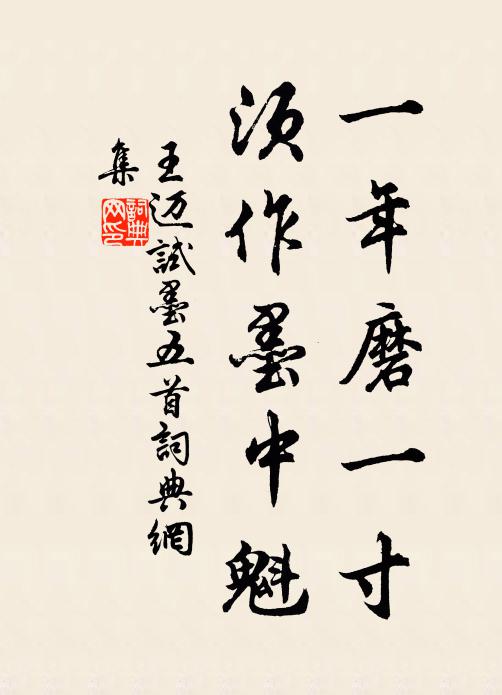 一年磨一寸
须作墨中魁
王迈試墨五首詞典網
集
詞典
网印